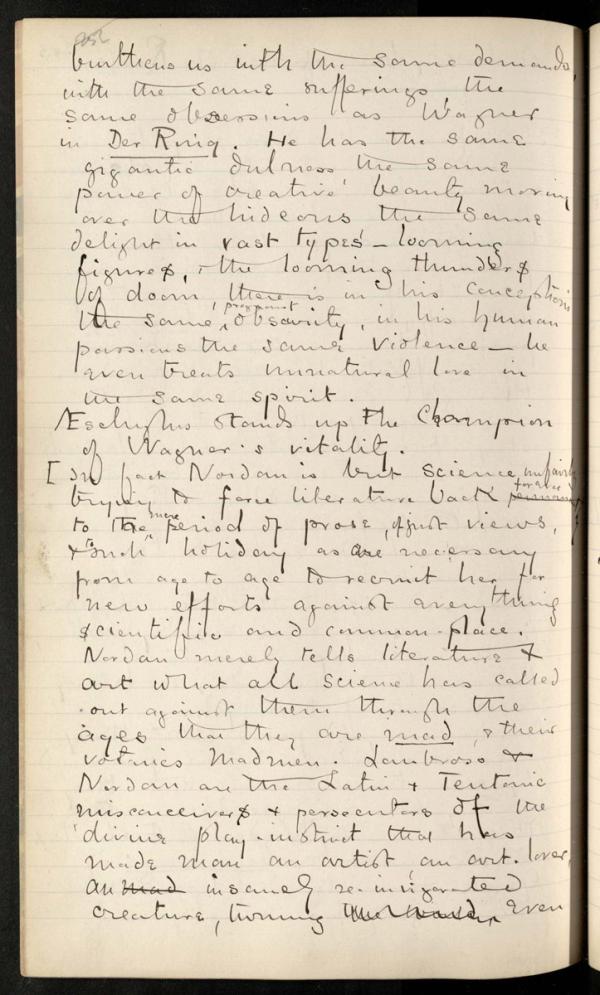 burthens us with the same demands,
with the same sufferings, the
same obsessions as Wagner
in Der Ring. He has the same
gigantic dulness, the same
power of creative beauty moving
over the hideous the same
delight in vast types – looming
figures, + the looming thunders
of doom, there is in his conceptions
the same, pregnant obscurity, in his human
passions the same violence – he
even treats unnatural love in
the same spirit.
Æschylus stands up the Champion
of Wagner's vitality.
[ In fact Nordau is but science unfairly
trying to force literature back for a
to the mere period of prose, of just views,
+ to such holiday as are necessary
from age to age to recruit her for
new efforts against everything
scientific and common-place.
Nordau merely tells literature +
art what all Science has called
out against them through the
ages that they are mad, & their
votaries madmen. Lombroso &
Nordau are the Latin + Teutonic
misconceivers + persecutors of the
divine play-instinct that has
made man an artist, an art-lover,
an mad insanely re-invigorated
creature, turning even